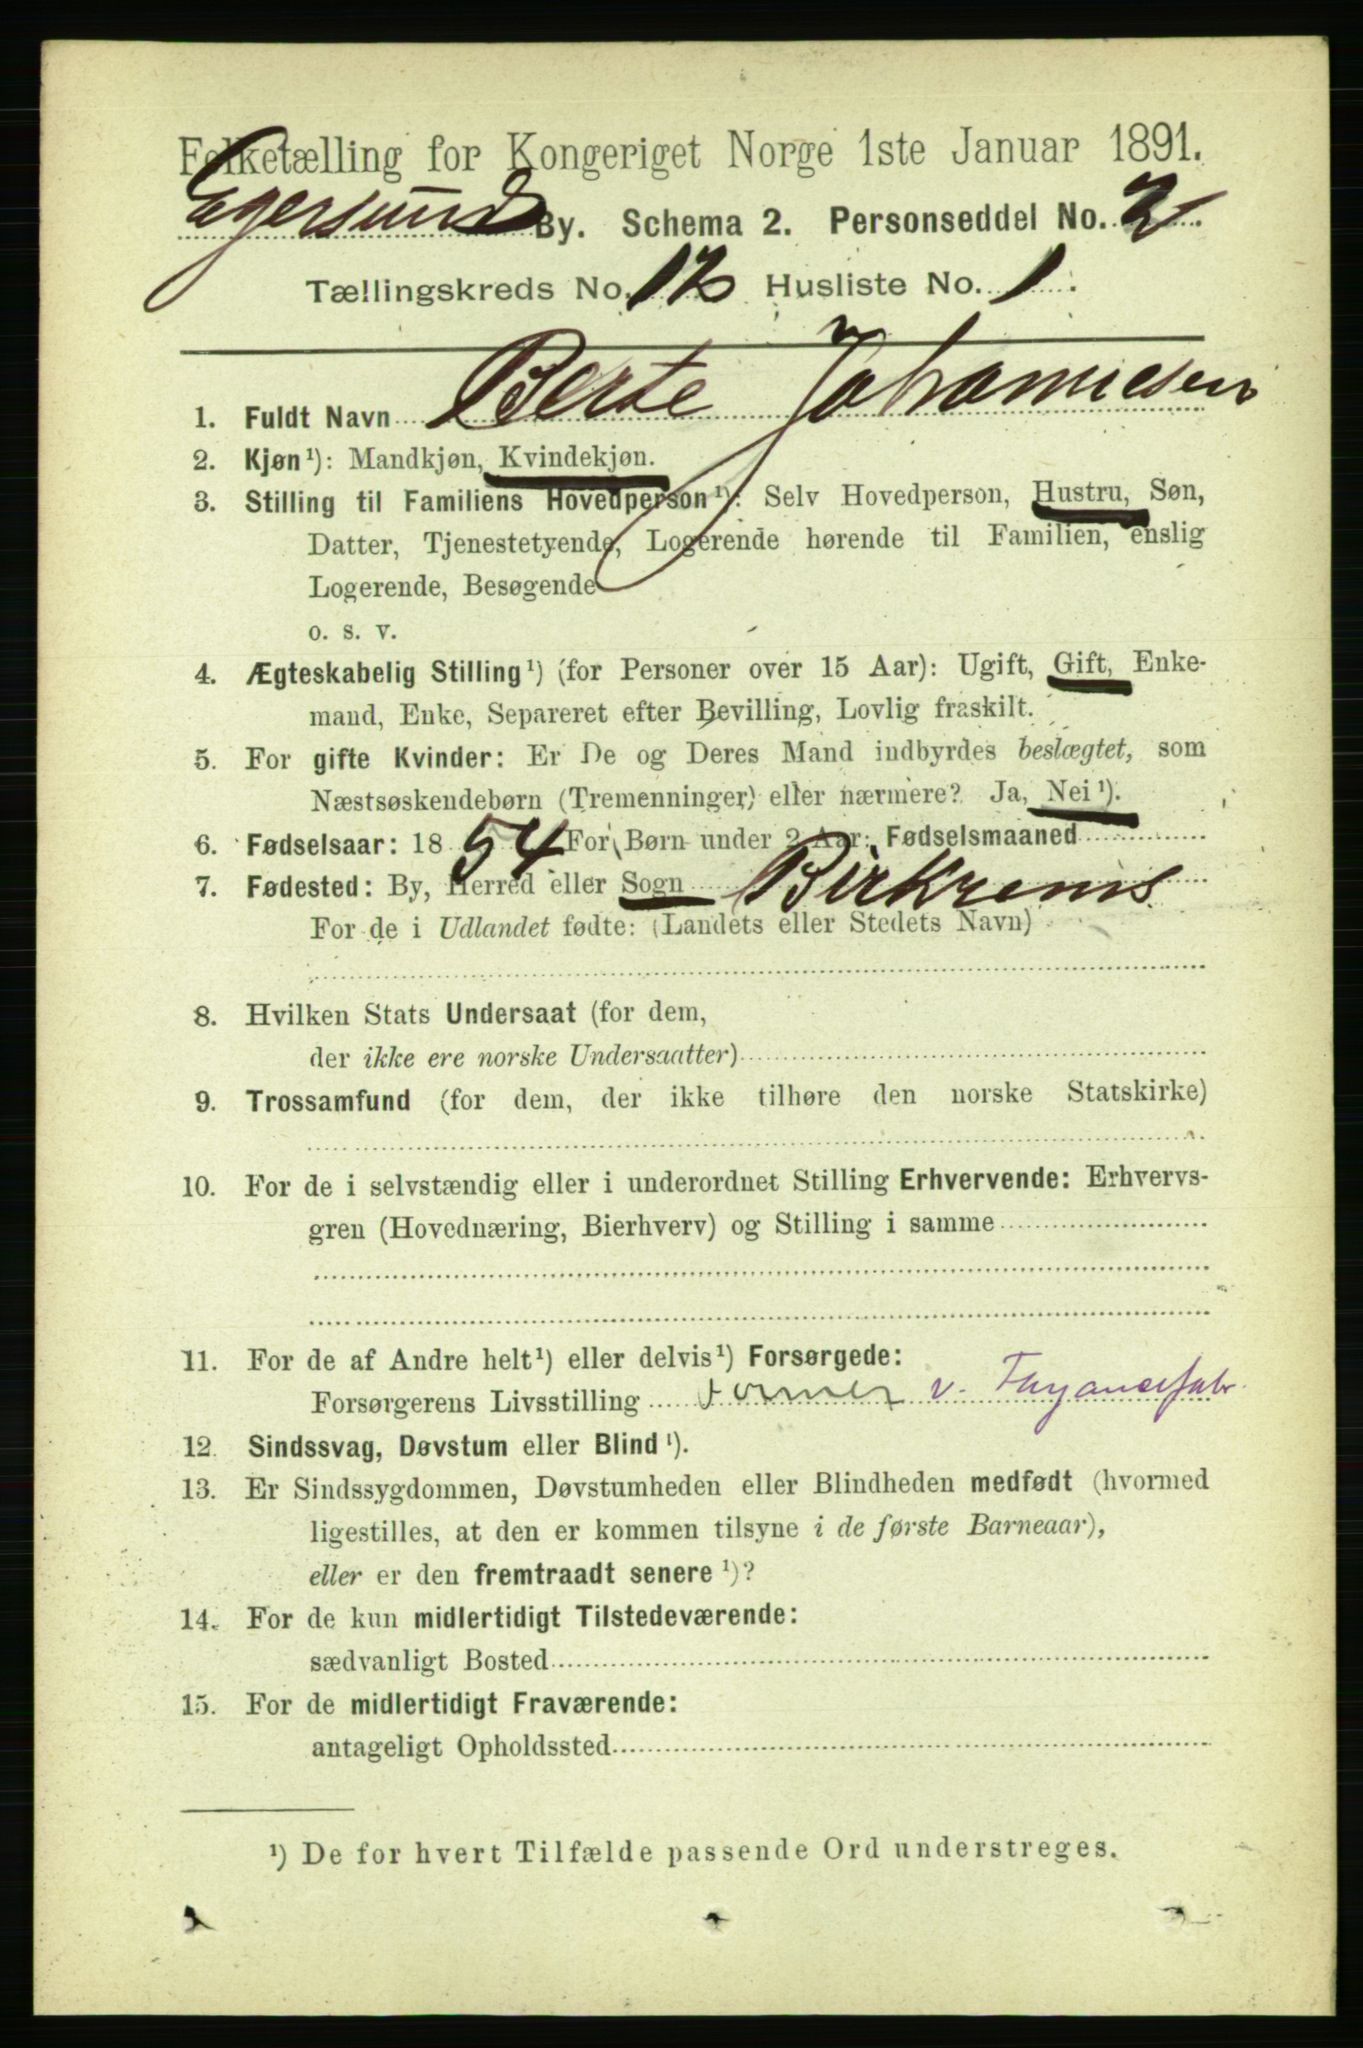 Folketælling for Kongeriget Norge 1ste Januar 1891.
Egersund By. Schema 2. Personseddel No. 2.
Tællingskreds No. 12 Husliste No. 1.
1. Fuldt Navn Berte Johannesen
2. Kjøn¹): Mandkjøn, Kvindekjøn.
3. Stilling til Familiens Hovedperson¹): Selv Hovedperson, Hustru, Søn,
Datter, Tjenestetyende, Logerende hørende til Familien, enslig
Logerende, Besøgende
o. s. v.
4. Ægteskabelig Stilling¹) (for Personer over 15 Aar): Ugift, Gift, Enke-
mand, Enke, Separeret efter Bevilling, Lovlig fraskilt.
5. For gifte Kvinder: Er De og Deres Mand indbyrdes beslægtet, som
Næstsøskendebørn (Tremenninger) eller nærmere? Ja, Nei¹).
6. Fødselsaar: 1854 For Børn under 2 Aar: Fødselsmaaned
7. Fødested: By, Herred eller Sogn Birkrems
For de i Udlandet fødte: (Landets eller Stedets Navn)
8. Hvilken Stats Undersaat (for dem,
der ikke ere norske Undersaatter)
9. Trossamfund (for dem, der ikke tilhøre den norske Statskirke)
10. For de i selvstændig eller i underordnet Stilling Erhvervende: Erhvervs-
gren (Hovednæring, Bierhverv) og Stilling i samme
11. For de af Andre helt¹) eller delvis¹) Forsørgede:
Forsørgerens Livsstilling Former v. Fayancefabr.
12. Sindssvag, Døvstum eller Blind¹).
13. Er Sindssygdommen, Døvstumheden eller Blindheden medfødt (hvormed
ligestilles, at den er kommen tilsyne i de første Barneaar),
eller er den fremtraadt senere¹)?
14. For de kun midlertidigt Tilstedeværende:
sædvanligt Bosted
15. For de midlertidigt Fraværende:
antageligt Opholdssted
¹) De for hvert Tilfælde passende Ord understreges.